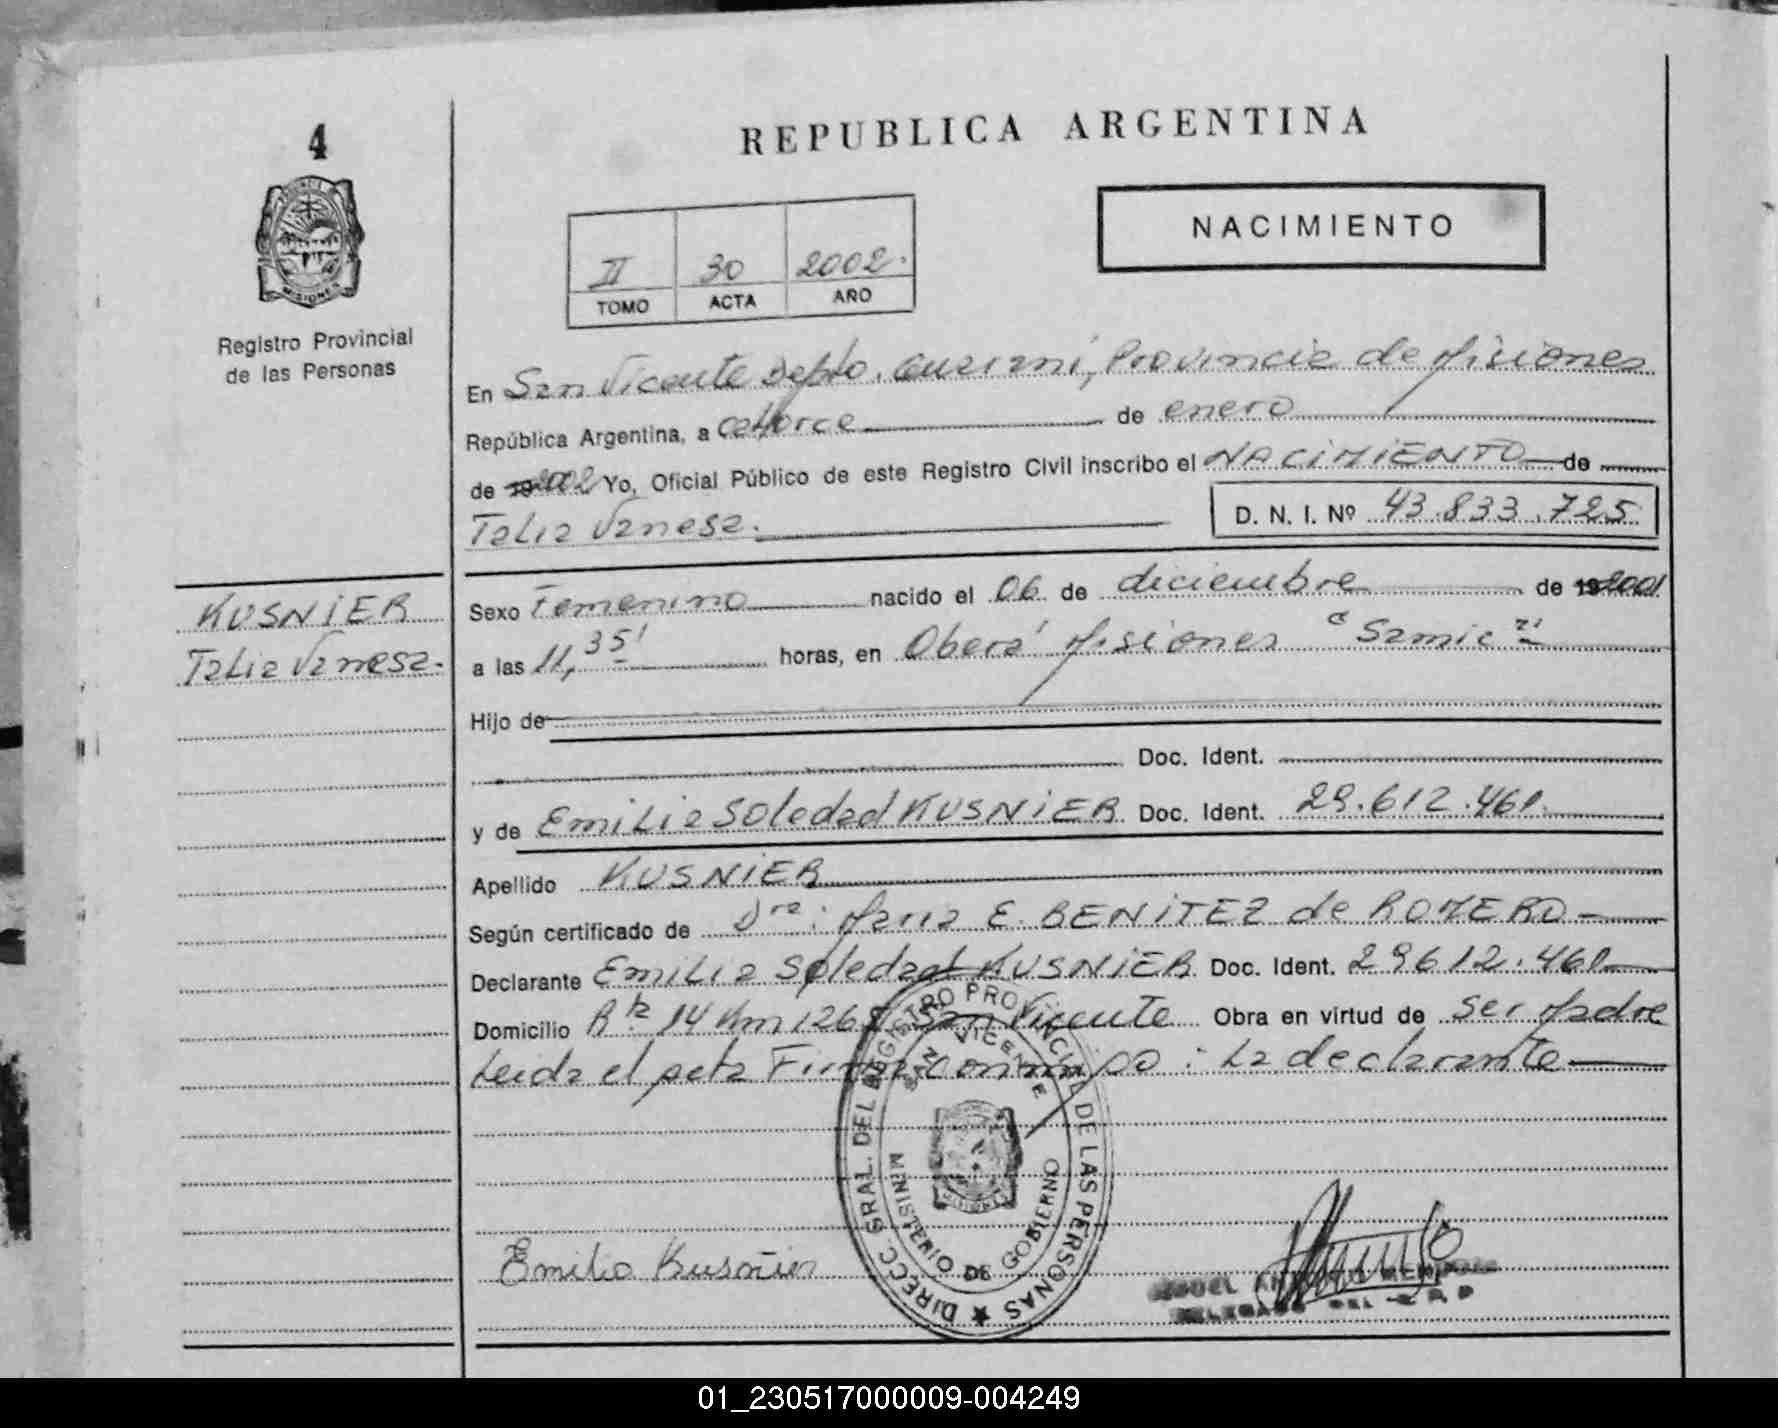 4
REPUBLICA ARGENTINA
NACIMIENTO
II 30 2002.
TOMO ACTA AÑO
MISIONES
Registro Provincial
de las Personas
En San Vicente Depto. Guaraní, Provincia de Misiones
República Argentina, a catorce de enero
de 19 2002 Yo, Oficial Público de este Registro Civil inscribo el NACIMIENTO de
Talia Vanesa. D. N. I. Nº 43.833.725
KUSNIER
Talia Vanesa.
Sexo Femenino nacido el 06 de diciembre de 19 2001
a las 11,35' horas, en Oberá Misiones "Samic"
Hijo de
Doc. Ident.
y de Emilia Soledad KUSNIER Doc. Ident. 29.612.461.
Apellido KUSNIER
Según certificado de Dra: Maria E. BENITEZ de ROMERO
Declarante Emilia Soledad KUSNIER Doc. Ident. 29612.461
Domicilio Rta 14 Km 1268 San Vicente Obra en virtud de ser Madre
Leida el acta Firma conmigo: La declarante
DIRECC. GRAL. DEL REGISTRO PROVINCIAL DE LAS PERSONAS
SAN VICENTE
MISIONES
MINISTERIO DE GOBIERNO
Emilia Kusñier
MIGUEL ANTONIO
DELEGADO DEL R P
01_230517000009-004249